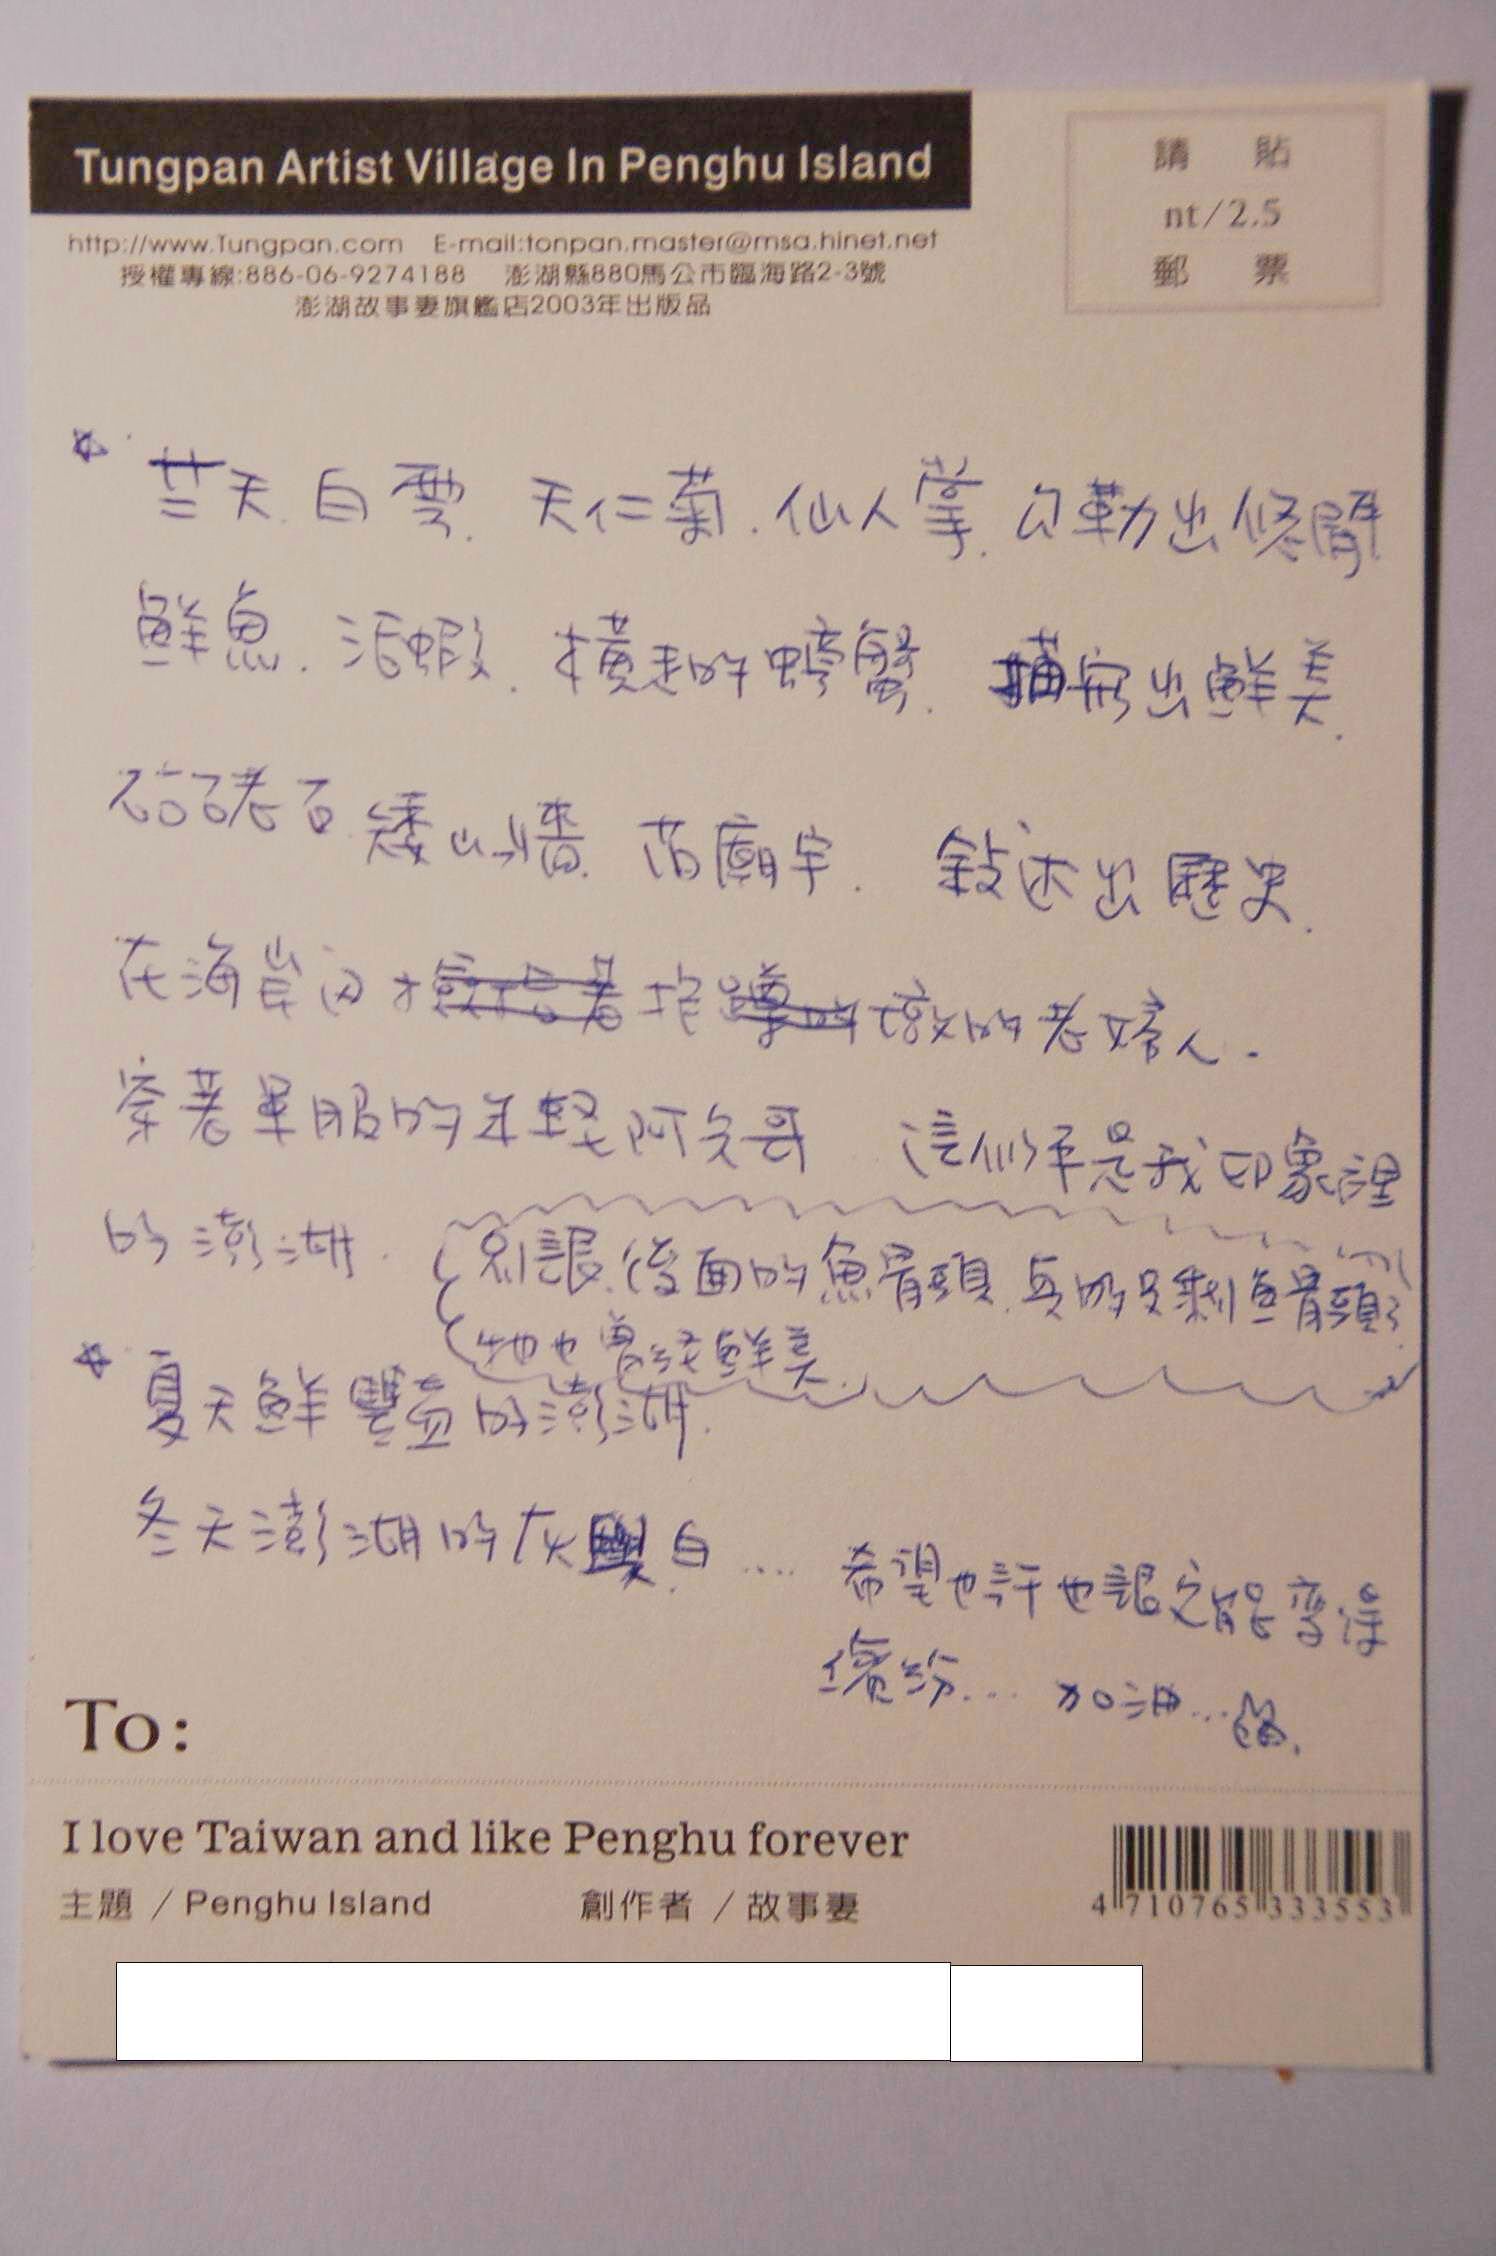 Tungpan Artist Village In Penghu Island
請 貼
nt/2.5
郵 票
http://www.Tungpan.com E-mail:tonpan.master@msa.hinet.net
授權專線:886-06-9274188 澎湖縣880馬公市臨海路2-3號
澎湖故事妻旗艦店2003年出版品
天.白雲.天仁菊.仙人掌.勾勒出修閒
鮮魚.活蝦.橫走的螃蟹.描寫出鮮美.
硓石矮山牆.古廟宇.敘述出歷史.
在海岸的老婦人.
穿著軍服的年輕阿兵哥 這似乎是我印象裡
的澎湖.
別誤後面的魚骨頭.真的只剩魚骨頭了.
牠也曾經鮮美.
夏天鮮豐盈的澎湖.
冬天澎湖的灰與白....
希望也許也誤之能變得
繽紛... 加油...
To:
I love Taiwan and like Penghu forever
主題 / Penghu Island 創作者 / 故事妻
4 710765 333553